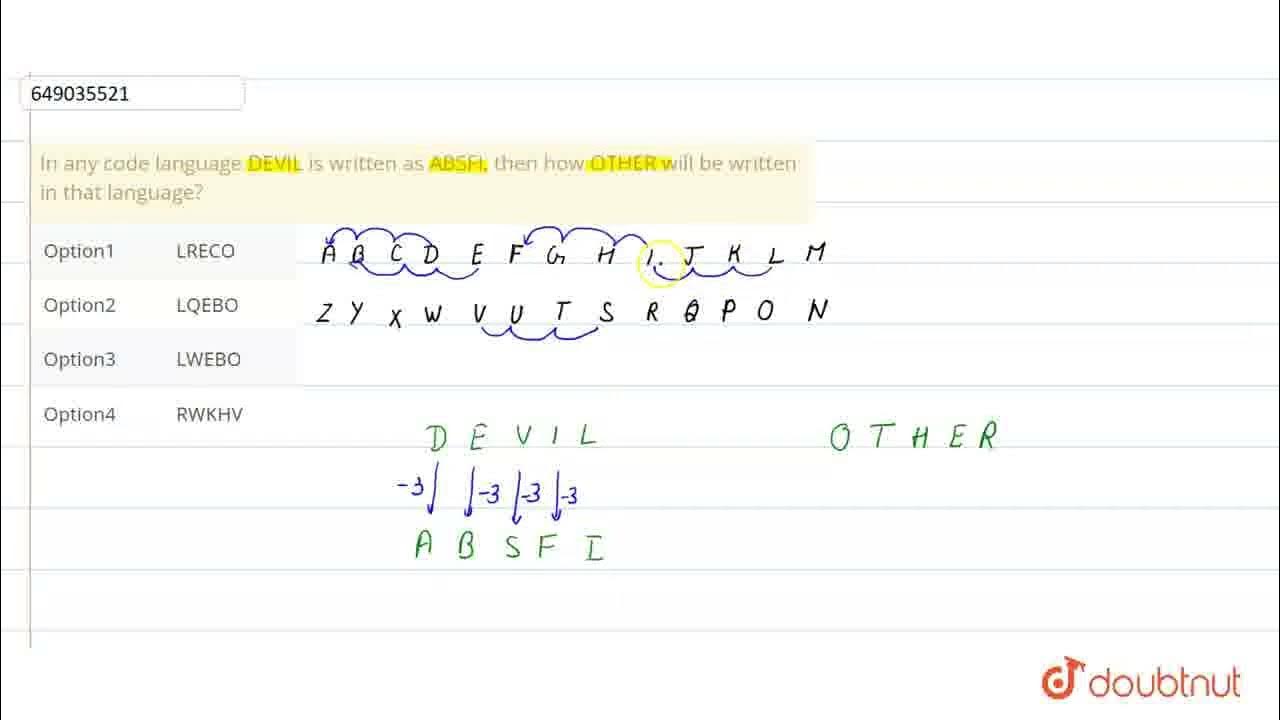 649035521
In any code language DEVIL is written as ABSFI, then how OTHER will be written
in that language?
Option1 LRECO
Option2 LQEBO
Option3 LWEBO
Option4 RWKHV
A B C D E F G H I. J K L M
Z Y X W V U T S R Q P O N
D E V I L
-3 -3 -3 -3
A B S F I
O T H E R
doubtnut